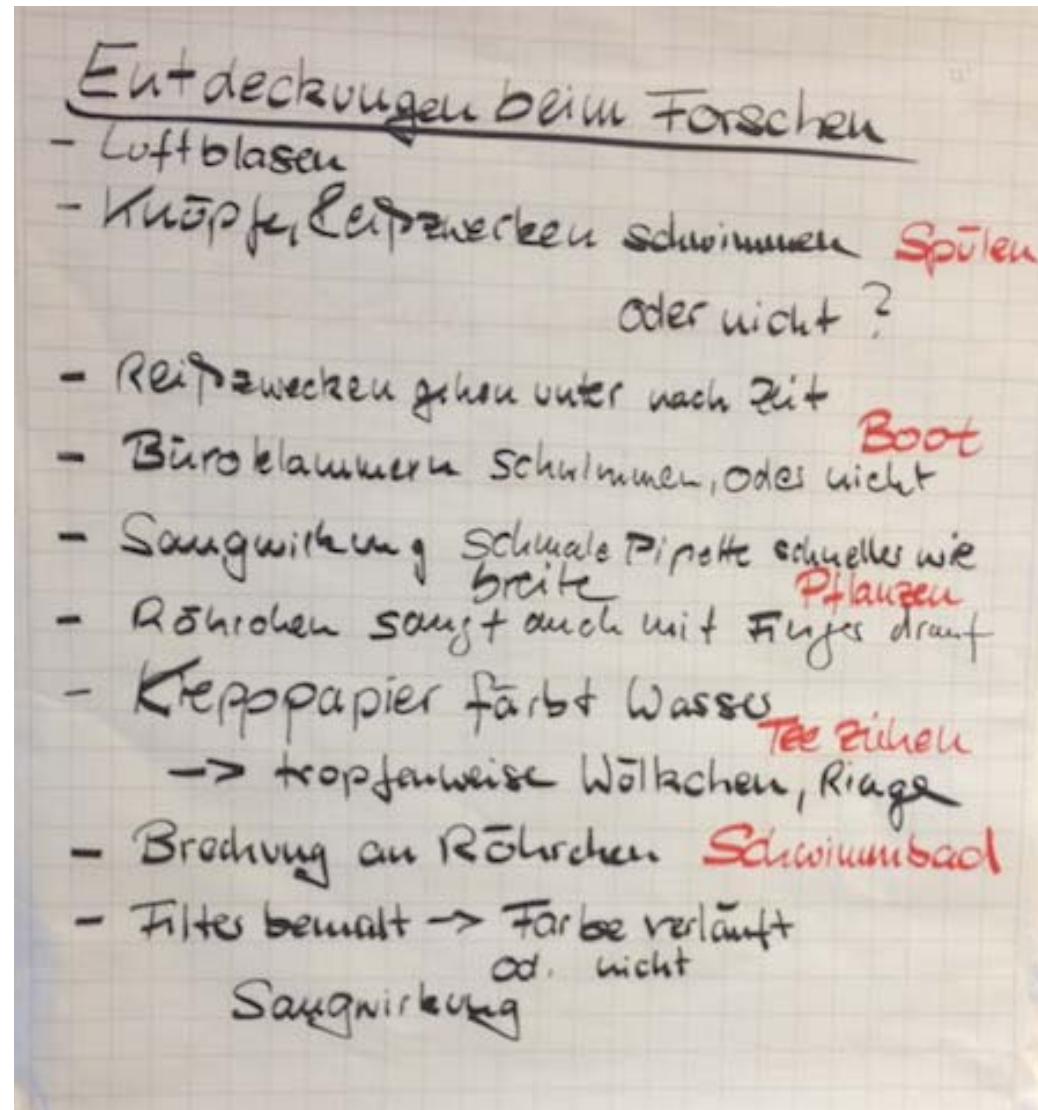 Entdeckungen beim Forschen
- Luftblasen
- Knöpfe, Reißzwecken schwimmen Spülen
oder nicht?
- Reißzwecken gehen unter nach Zeit
Boot
- Büroklammern schwimmen, oder nicht
- Saugwirkung schmale Pipette schneller wie
breite Pflanzen
- Röhrchen saugt auch mit Finger drauf
- Krepppapier färbt Wasser
Tee ziehen
-> tropfenweise Wölkchen, Ringe
- Brechung an Röhrchen Schwimmbad
- Filter bemalt -> Farbe verläuft
od. nicht
Saugwirkung